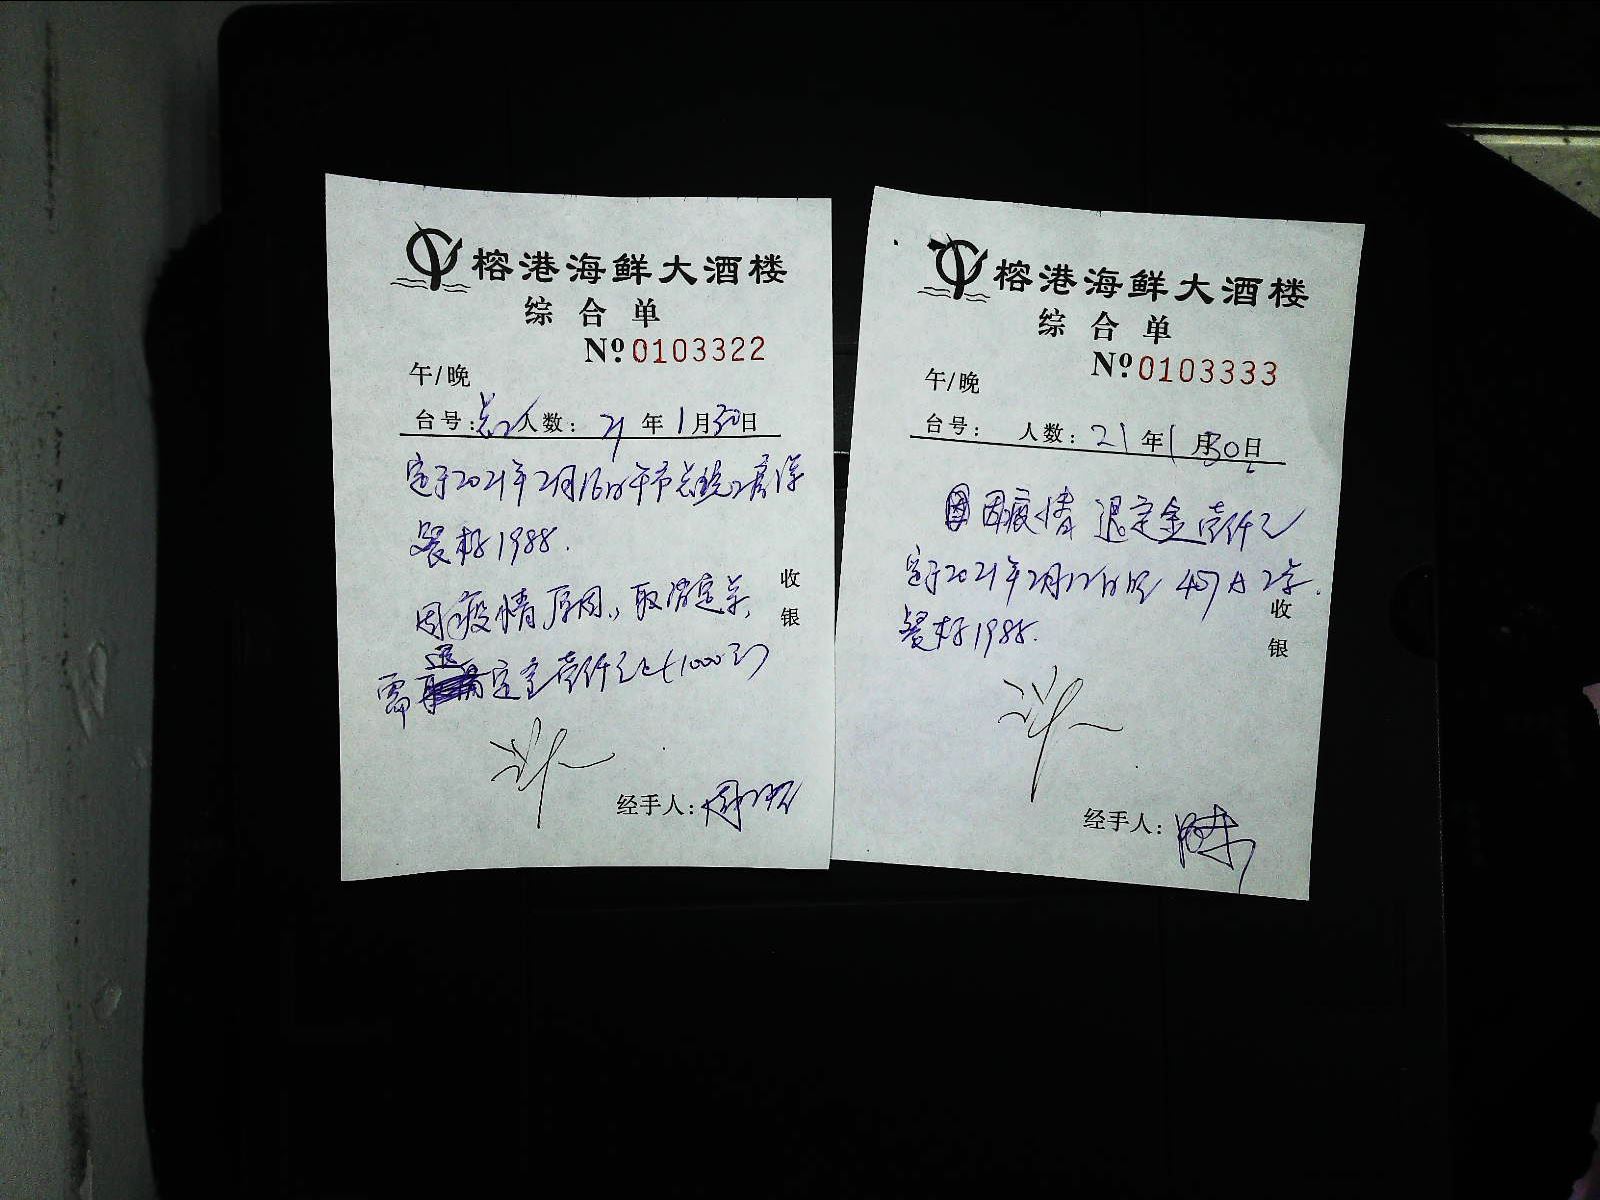 榕港海鲜大酒楼
综合单
Nº 0103322
午/晚
台号：总2 人数： 21 年 1 月 30 日
定于2021年2月16日午市总统2房
餐标1988.
因疫情原因，取消定单，
需退定金壹仟元（1000元）
收银
经手人：
榕港海鲜大酒楼
综合单
Nº 0103333
午/晚
台号： 人数： 21 年 1 月 30 日
因疫情 退定金壹仟元
定于2021年2月12日晚 457A 2桌.
餐标1988.
收银
经手人：